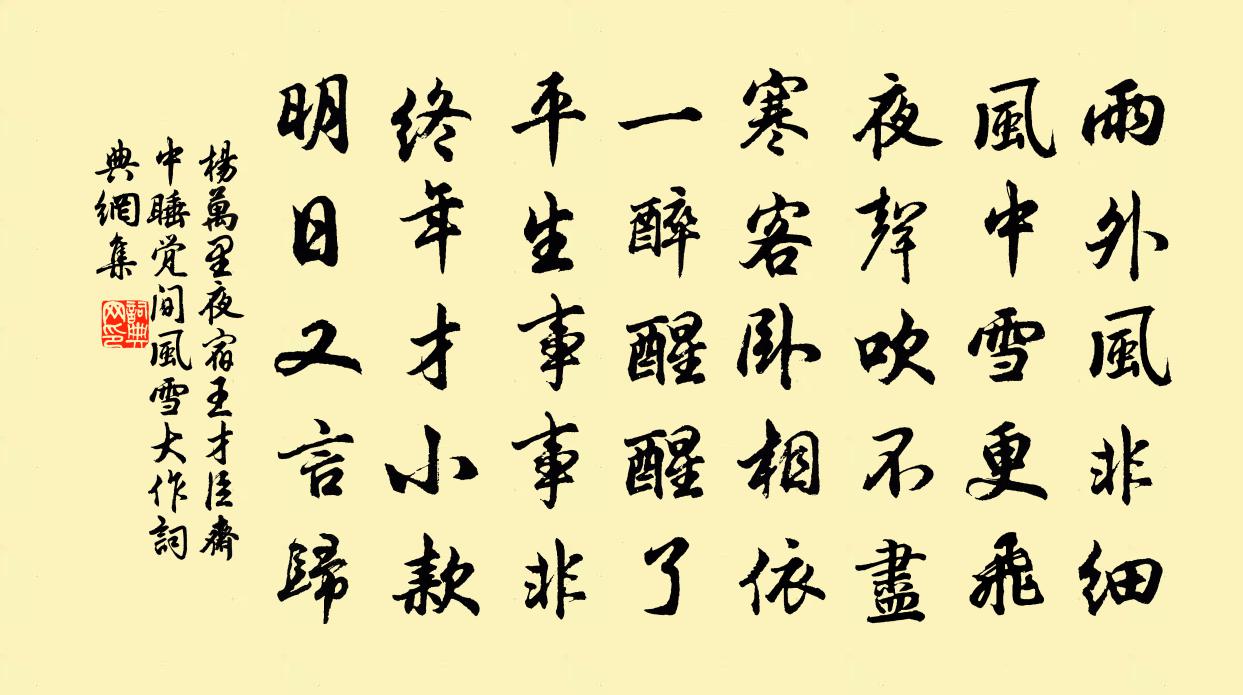 雨外風非細
風中雪更飛
夜聲吹不盡
寒客臥相依
一醉醒醒了
平生事事非
終年才小款
明日又言歸
楊萬里夜宿王才臣齋
中睡覚间風雪大作詞
典網集
詞典
网印